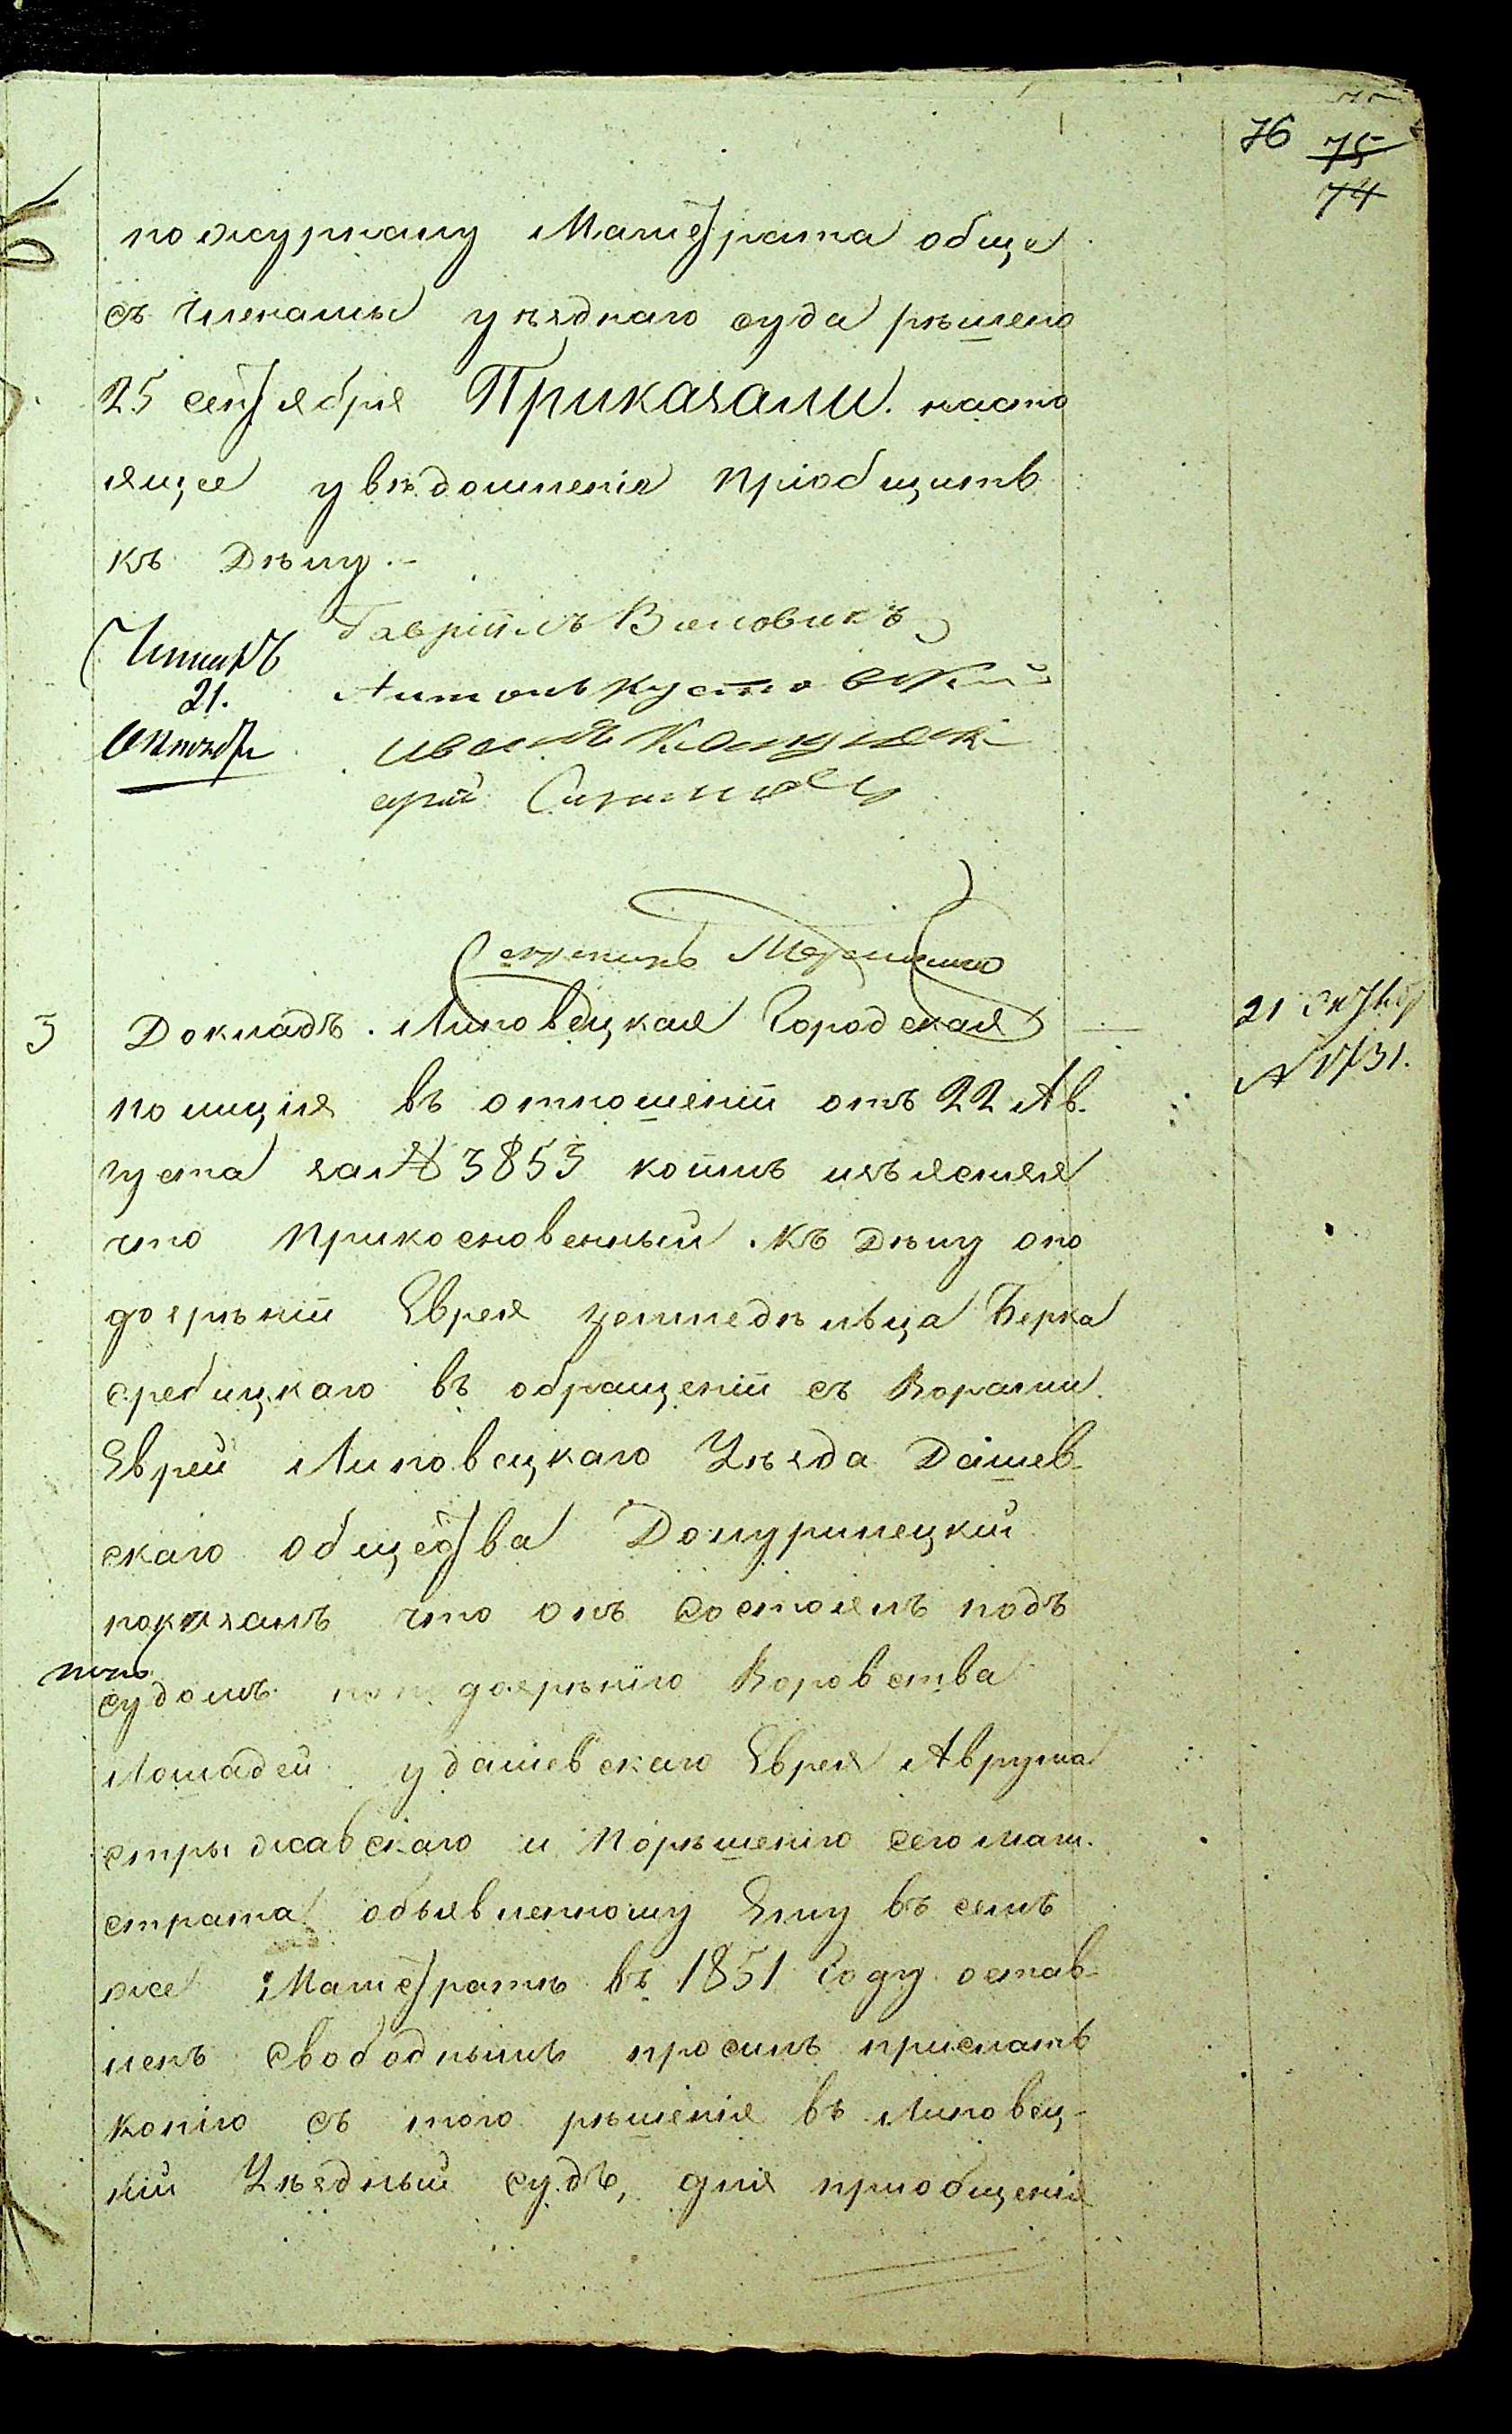 76 75
74
по журналу Магистрата обще
съ членами уѣзднаго суда рѣшено
25 сентября Приказали. насто
ящее увѣдомленія пріобщить
къ Дѣлу.-
Читалъ
21.
Октября
Гавріилъ
Антонъ Кустовскій
Иванъ
Секретарь
3 Докладъ. Липовецкая Городская
21 Октяб
№ 1731.
полиція въ отношеніи отъ 22 Ав-
густа за № 3853 коимъ изъясняя
что прикосновенный къ дѣлу опо
дозрѣніи Еврея земледѣльца Берка
сребицкаго въ обращеніи съ Ворами
Еврей Липовецкаго Уѣзда Дашев-
скаго общества Долуринецкій
показалъ что онъ состоялъ подъ
судомъ по подозрѣнію Воровства
Лошадей у дашевскаго Еврея Аврума
стрыжавскаго и порѣшенію сего маги-
страта объявленному Ему въ семъ
же Магистратѣ въ 1851 Году остав-
ленъ свободнымъ просилъ прислать
копію съ того рѣшенія въ Липовец-
кій Уѣздный судъ, для пріобщенія